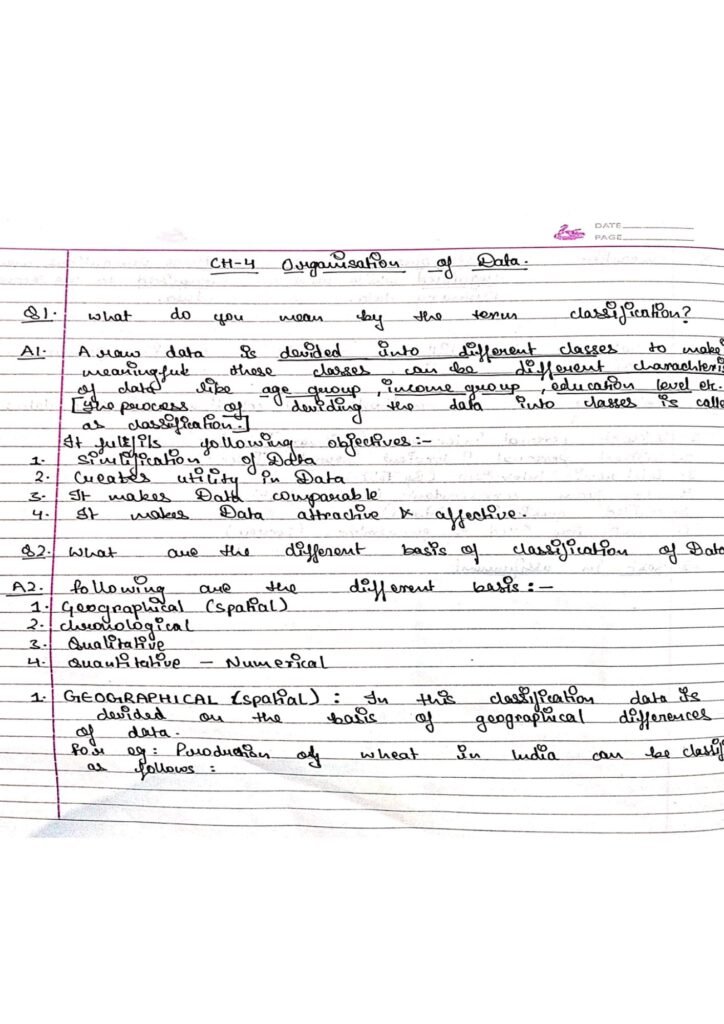 DATE
PAGE
CH-4 Organisation of Data.
Q1. What do you mean by the term classification?
A1. A raw data is devided into different classes to make
meaningful these classes can be different charachteri
of data like age group, income group, education level etc.
[The process of deviding the data into classes is calle
as classification.]
It fulfils following objectives:-
1. Simlification of Data
2. Creates utility in Data
3. It makes Data comparable
4. It makes Data attractive & affective.
Q2. What are the different basis of classification of Data
A2. following are the different basis:-
1. Geographical (spatial)
2. chronological
3. Qualitative
4. Quantitative - Numerical
1. GEOGRAPHICAL (spatial): In this classification data is
devided on the basis of geographical differences
of data.
for eg: Production of wheat in India can be classif
as follows: